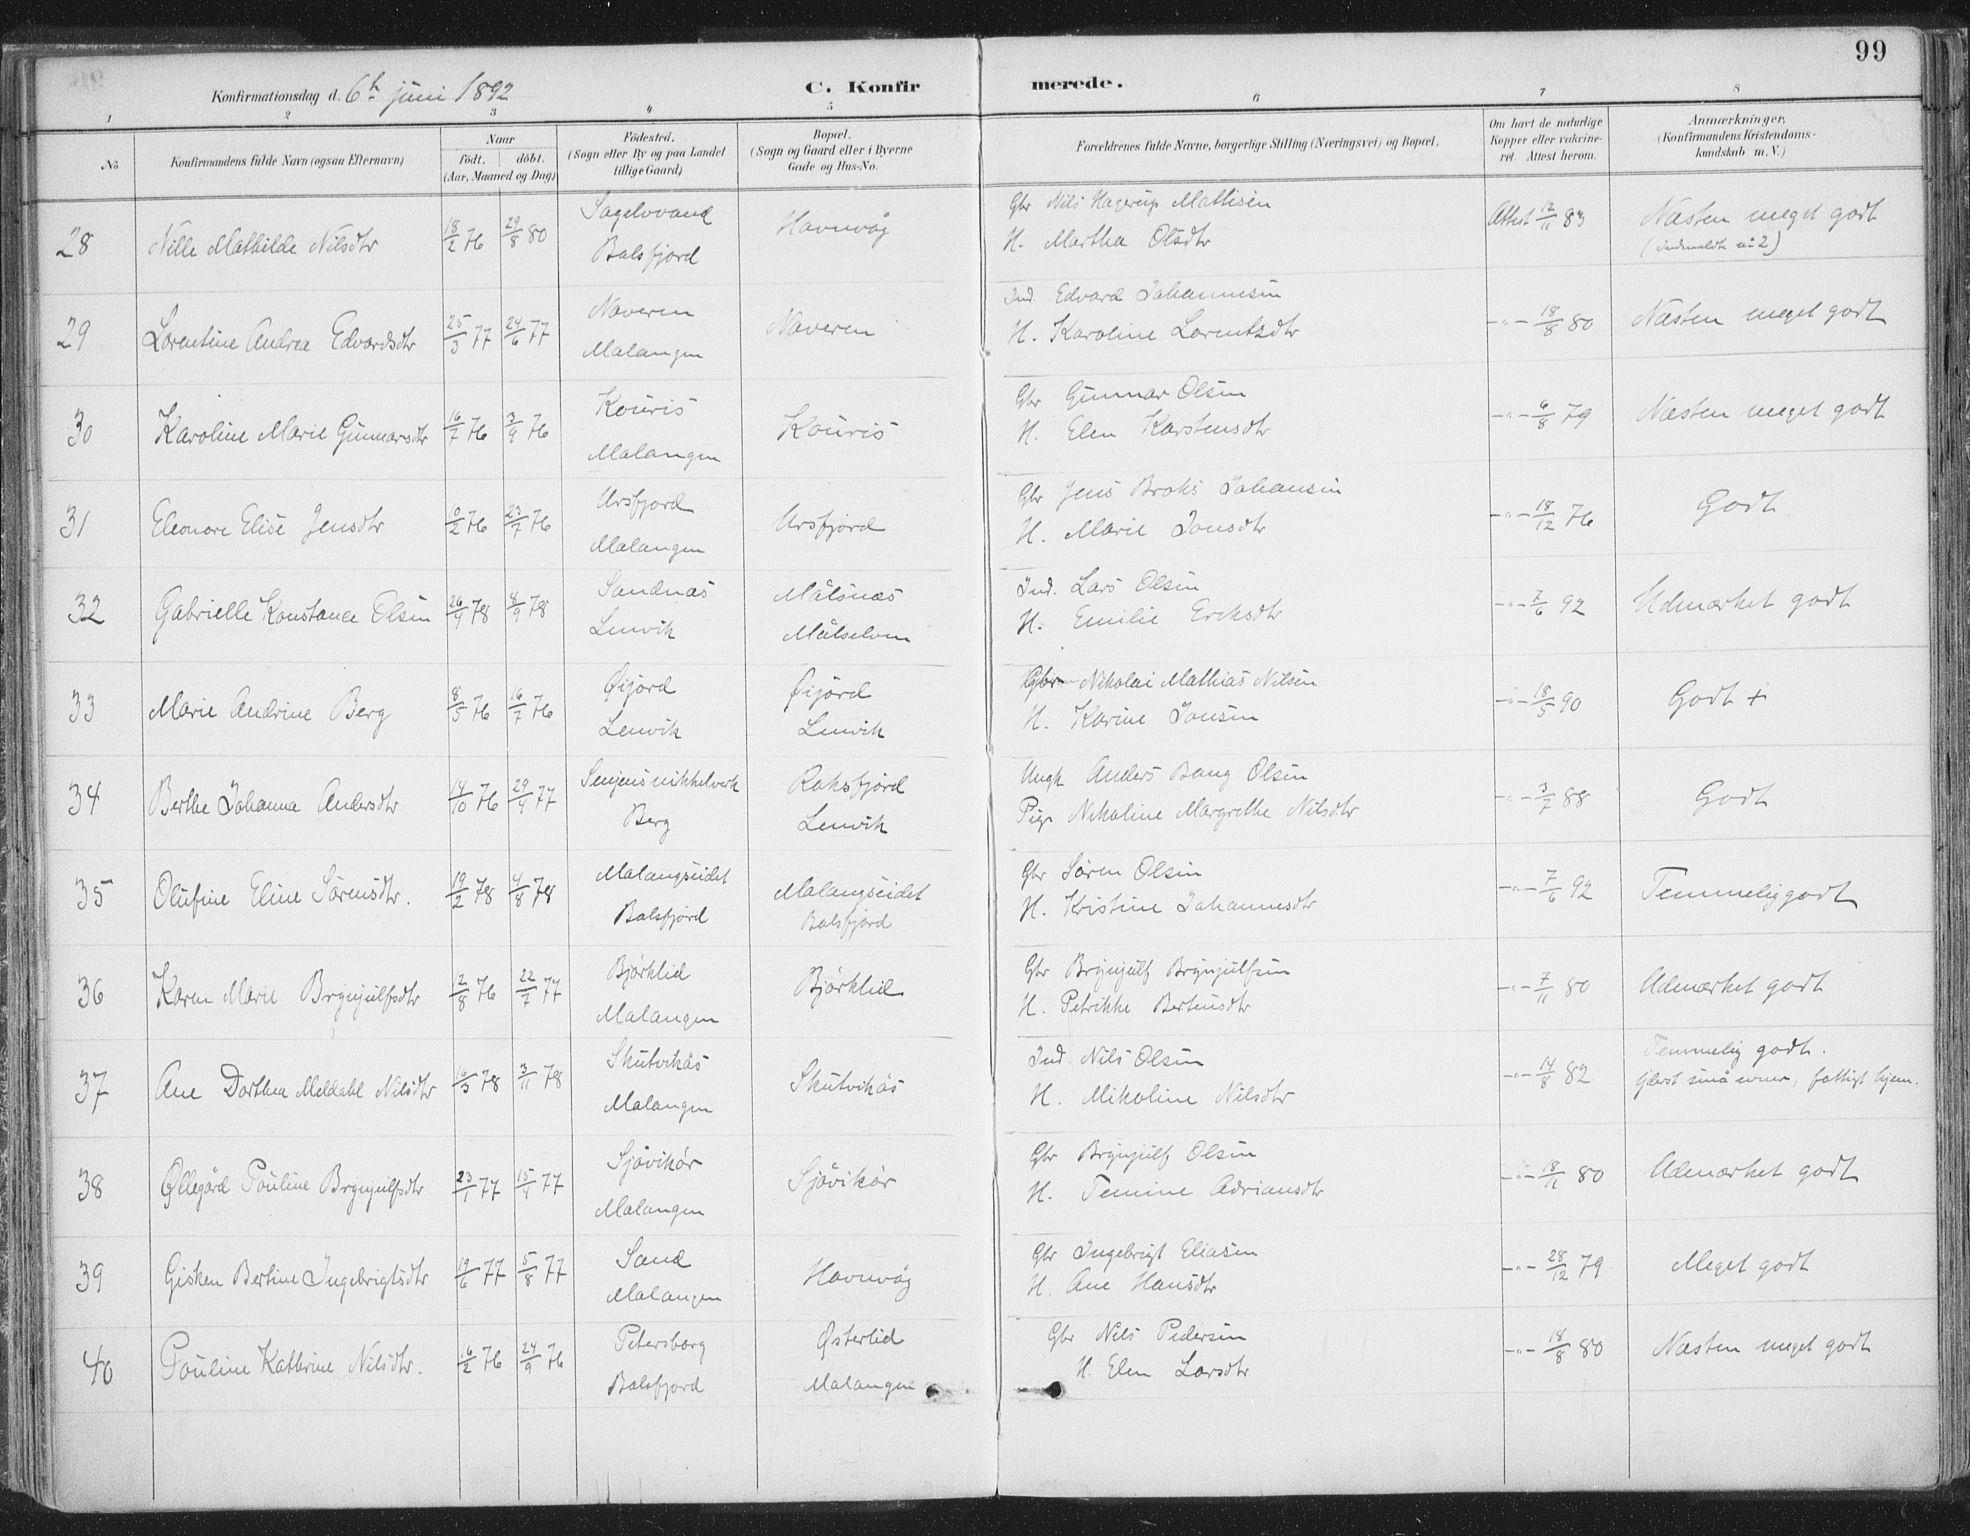 99
Konfirmationsdag d. 6th juni 1892
C. Konfirmerede.
1 2 3 4 5 6 7 8
No. Konfirmandens fulde Navn (ogsaa Efternavn) Naar födt. döbt. (Aar, Maaned og Dag) Födested. (Sogn eller By og paa Landet tillige Gaard) Bopæl. (Sogn og Gaard eller i Byerne Gade og Hus-No. Forældrenes fulde Navne, borgerlige Stilling (Næringsvei) og Bopæl. Om havt de naturlige Kopper eller vakcineret. Attest herom. Anmærkninger. (Konfirmandens Kristendomskundskab m. V.)
28 Nille Mathilde Nilsdtr 18/2 76 29/8 80 Sagelvvand Balsfjord Havnvåg Gbr Nils Hagerup Mathisen H. Martha Olsdtr Attest 12/11 83 Næsten meget godt
29 Lorentine Andrea Edvardsdtr 25/3 77 24/6 77 Naveren Malangen Naveren Ind. Edvard Johannesen H. Karoline Lorentzdtr -"- 18/8 80 Næsten meget godt
30 Karoline Marie Gunnarsdtr 16/7 76 3/9 76 Kouris Malangen Kouris Gbr Gunnar Olsen H. Elen Karstensdtr -"- 6/8 79 Næsten meget godt
31 Eleonore Elise Jensdtr 10/2 76 23/7 76 Ursfjord Malangen Ursfjord Gbr Jens Broks Johansen H. Marie Jonsdtr -"- 18/12 76 Godt
32 Gabrielle Konstance Olsen 26/4 78 8/9 78 Sandnæs Lenvik Målsnæs Målselven Ind. Lars Olsen H. Emilie Eriksdtr -"- 7/6 92 Udmærket godt
33 Marie Andrine Berg 8/5 76 16/7 76 Øijord Lenvik Øijord Lenvik Gbr Nikolai Mathias Nilsen H. Karine Jonsen -"- 18/5 90 Godt +
34 Berthe Johanna Andersdtr 14/10 76 29/4 77 Senjens nikkelverk Berg Roksfjord Lenvik Ungk Anders Bang Olsen Pige Nikoline Margrethe Nilsdtr -"- 3/7 88 Godt
35 Olufine Eline Sörensdtr. 19/2 78 4/8 78 Malangseidet Balsfjord Malangseidet Balsfjord Gbr Sören Olsen H. Kristine Johannesdtr -"- 7/6 92 Temmelig godt
36 Karen Marie Brynjulfsdtr 12/8 76 22/7 77 Björklid Malangen Björklid Gbr Brynjulf Brynjulfsen H. Petrikke Bertheusdtr -"- 7/11 80 Udmærket godt
37 Ane Dorthea Meldahl Nilsdtr 16/3 78 3/11 78 Skutvikås Malangen Skutvikås Ind. Nils Olsen H. Nikoline Nilsdtr -"- 14/8 82 Temmelig godt. små evner, fattigt hjem.
38 Øllegård Pouline Brynjulfsdtr 23/1 77 15/4 77 Sjövikör Malangen Sjövikör Gbr Brynjulf Olsen H. Temine Adriansdtr -"- 18/11 80 Udmærket godt
39 Gisken Bertine Ingebrigtsdtr 19/6 77 5/8 77 Sand Malangen Havnvåg Gbr Ingebrigt Eliasen H. Ane Hansdtr -"- 28/12 79 Meget godt
40 Pouline Kathrine Nilsdtr. 16/2 76 24/9 76 Petersborg Balsfjord Østerlid Malangen Gbr Nils Pedersen H. Elen Larsdtr -"- 18/8 80 Næsten meget godt